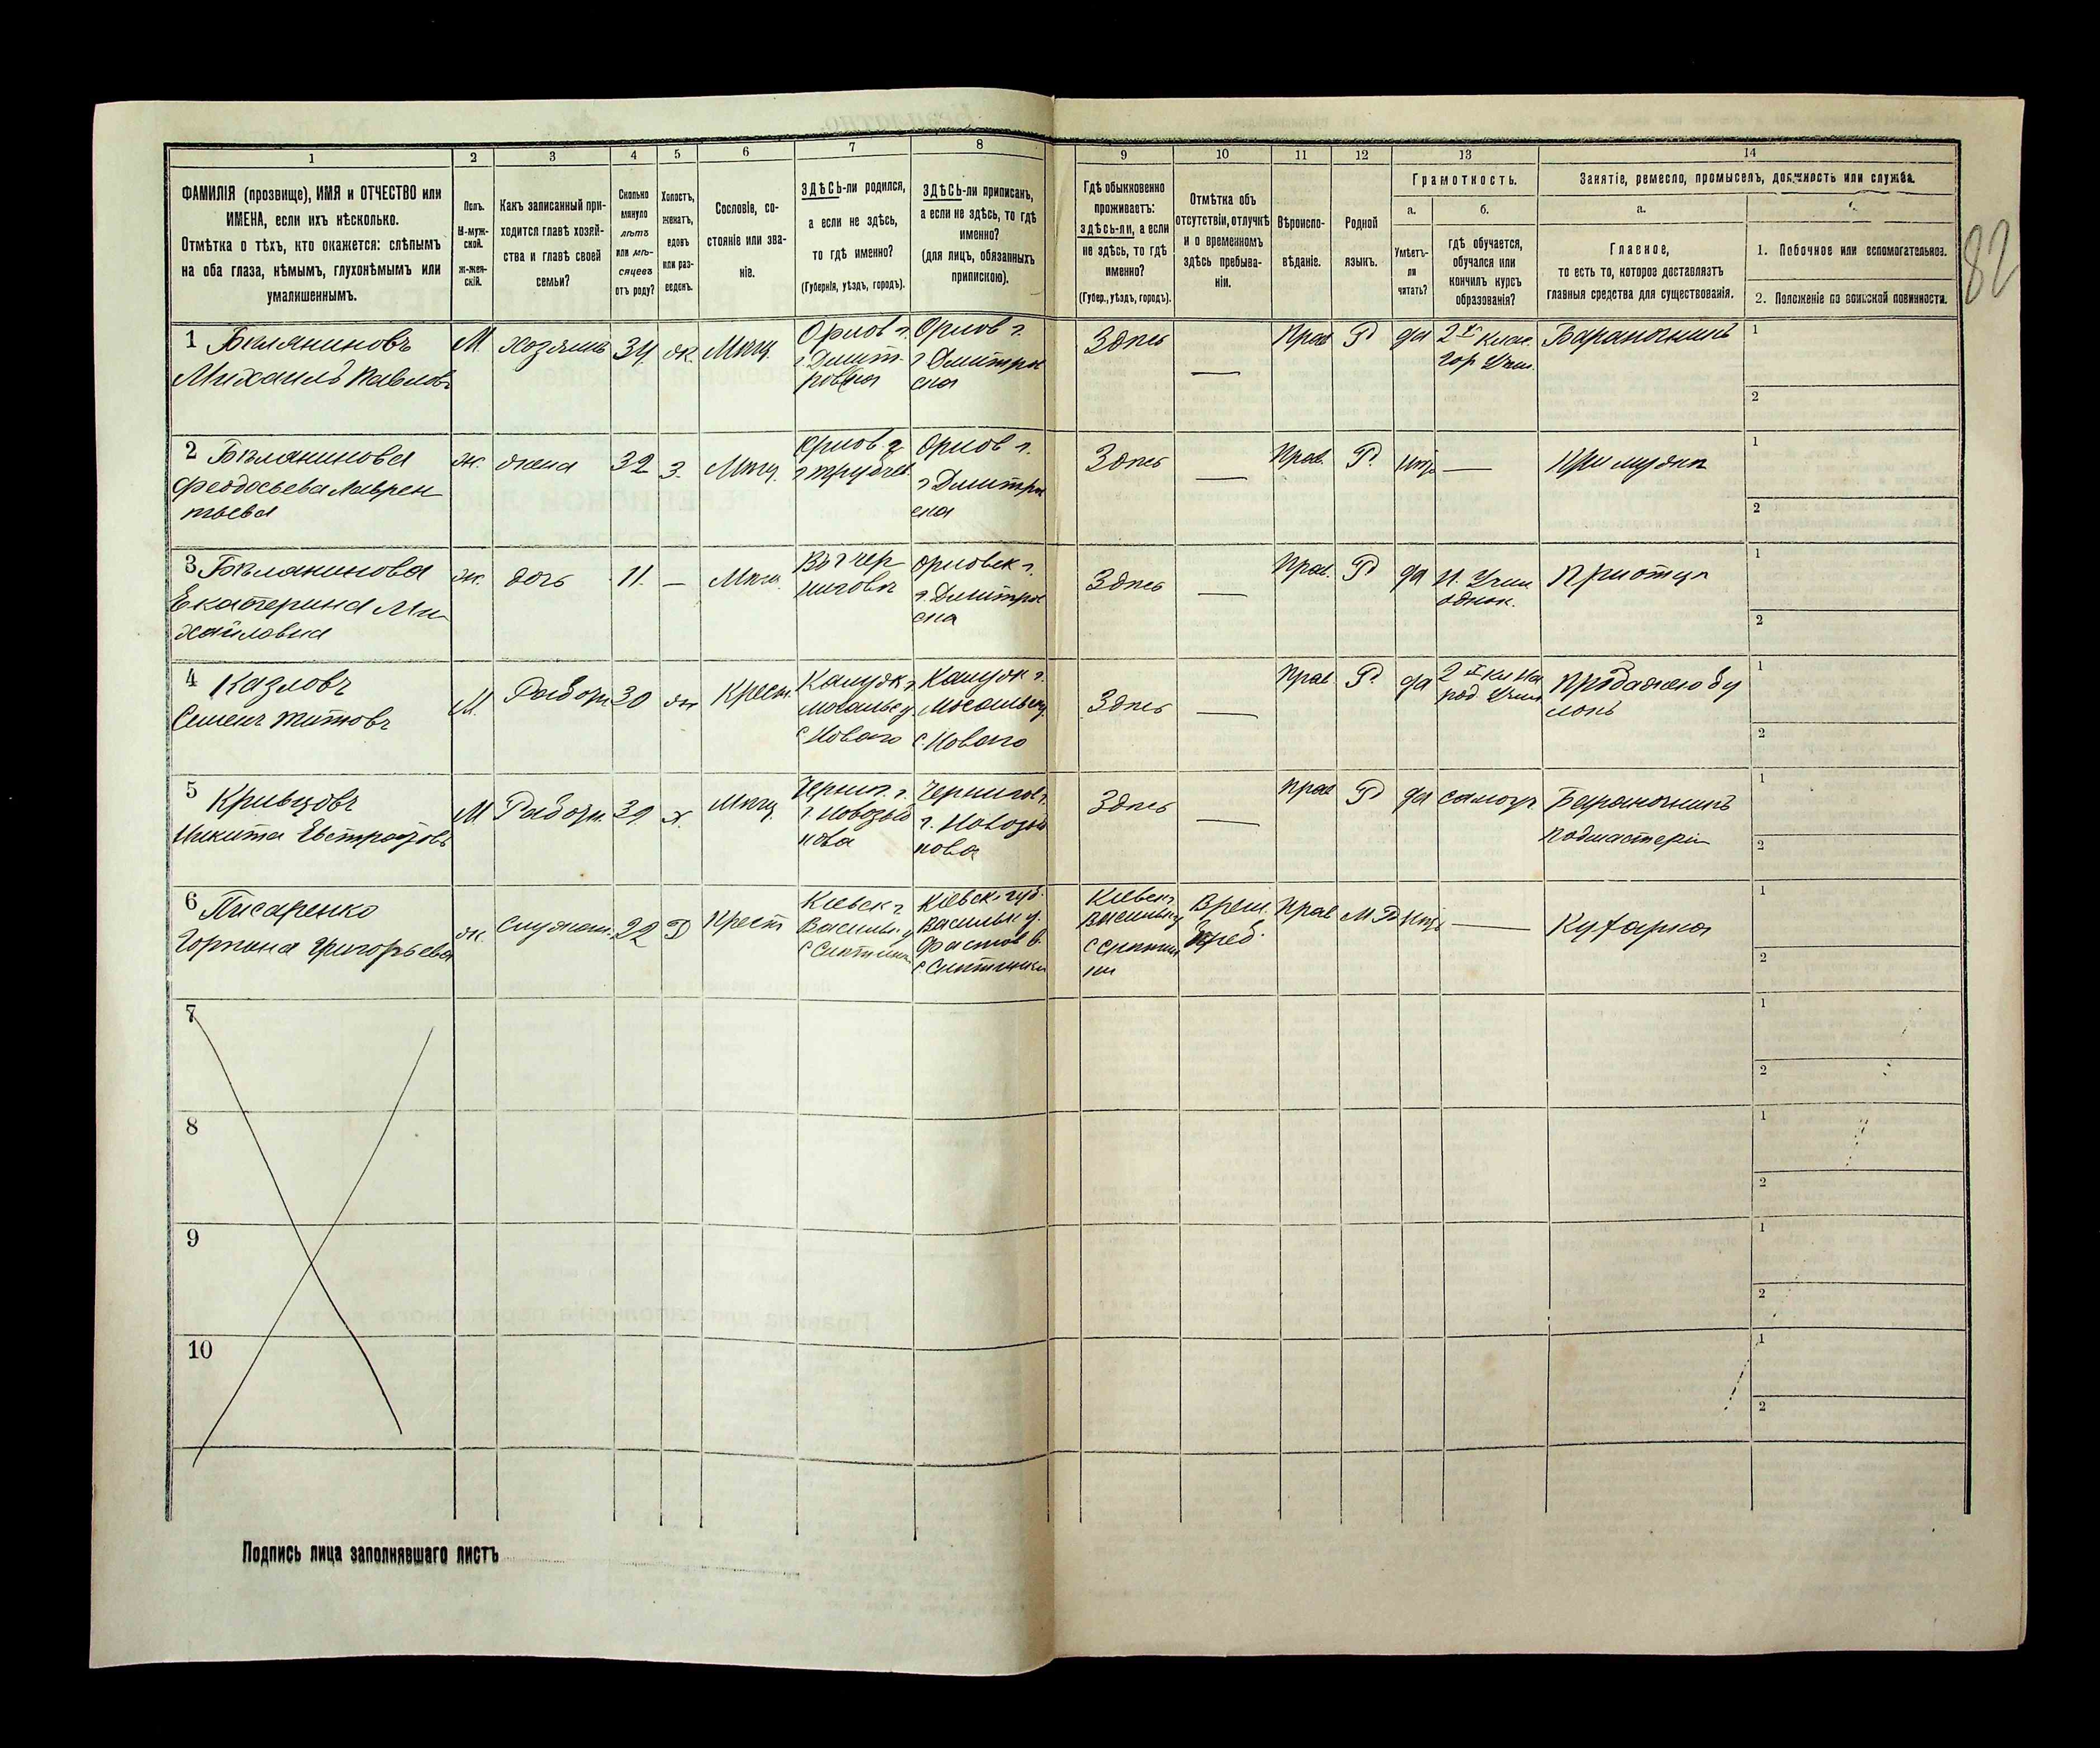 1 2 3 4 5 6 7 8 9 10 11 12 13 14
ФАМИЛІЯ (прозвище), ИМЯ и ОТЧЕСТВО или
ИМЕНА, если ихъ нѣсколько.
Отмѣтка о тѣхъ, кто окажется: слѣпымъ
на оба глаза, нѣмымъ, глухонѣмымъ или
умалишеннымъ.
Полъ.
М-муж-
ской.
ж-жен-
скій.
Какъ записанный при-
ходится главѣ хозяй-
ства и главѣ своей
семьи?
Сколько
минуло
лѣтъ
или мѣ-
сяцевъ
отъ роду?
Холостъ,
женатъ,
вдовъ
или раз-
веденъ.
Сословіе, со-
стояніе или зва-
ніе.
ЗДѢСЬ-ли родился,
а если не здѣсь,
то гдѣ именно?
(Губернія, уѣздъ, городъ).
ЗДѢСЬ-ли приписанъ,
а если не здѣсь, то гдѣ
именно?
(для лицъ, обязанныхъ
припискою).
Гдѣ обыкновенно
проживаетъ:
здѣсь-ли, а если
не здѣсь, то гдѣ
именно?
(Губер., уѣздъ, городъ).
Отмѣтка объ
отсутствіи, отлучкѣ
и о временномъ
здѣсь пребыва-
ніи.
Вѣроиспо-
вѣданіе.
Родной
языкъ.
Грамотность.
а.
Умѣетъ-
ли
читать?
б.
гдѣ обучается,
обучался или
кончилъ курсъ
образованія?
Занятіе, ремесло, промыселъ, должность или служба.
а.
Главное,
то есть то, которое доставляетъ
главныя средства для существованія.
1. Побочное или вспомогательное.
2. Положеніе по воинской повинности.
82
1 Бѣляниновъ
Михаилъ Павловъ
М. хозяинъ 34 ж. Мѣщ.
Орлов г.
г. Дмит-
ровска
Орлов г.
г Дмитров
ска
Здѣсь — Прав Р да
2х клас.
гор Учил.
Бараночникъ
1
2
2 Бѣлянинова
Феодосьева Лаврен
тьева
ж. жена 32 з. Мѣщ.
Орлов. г
г Трубчев
Орлов г.
г Дмитров
ска
Здѣсь — Прав. Р. нѣт —
При мужѣ
1
2
3 Бѣлянинова
Екатерина Ми
хайловна
ж. дочь 11. — Мѣщ
Въ г Чер
ниговѣ
Орловск г.
г. Дмитров
ска
Здѣсь — Прав. Р да
Н. Учил
однок.
При отцѣ
1
2
4 Казловъ
Семенъ Титовъ
М. Рабочи 30 ж Крест.
Калужк г
Мосальс у
с. Новаго
Калужк г.
Мосальск у.
с. Новаго
Здѣсь — Прав Р. да
2х кл На
род Учил
Продажею бу
локъ
1
2
5 Кривцовъ
Никита Евстратовъ
М Рабочи. 39 х. Мѣщ.
Черниг. г.
г. Новозыб
кова
Чернигов г.
г. Новозыб
кова
Здѣсь — Прав Р да самоуч
Бараночникъ
подмастерій
1
2
6 Писаренко
Горпина Григорьева
ж. Служан. 22 Д Крест
Кіевск г
Васильк у
Кіевск губ.
Васильк у.
Фастов в.
Кіевск г.
Васильк у
Врем.
преб.
Прав М Р нѣт —
Кухарка
1
2
7
1
2
8
1
2
9
1
2
10
1
2
Подпись лица заполнявшаго листъ